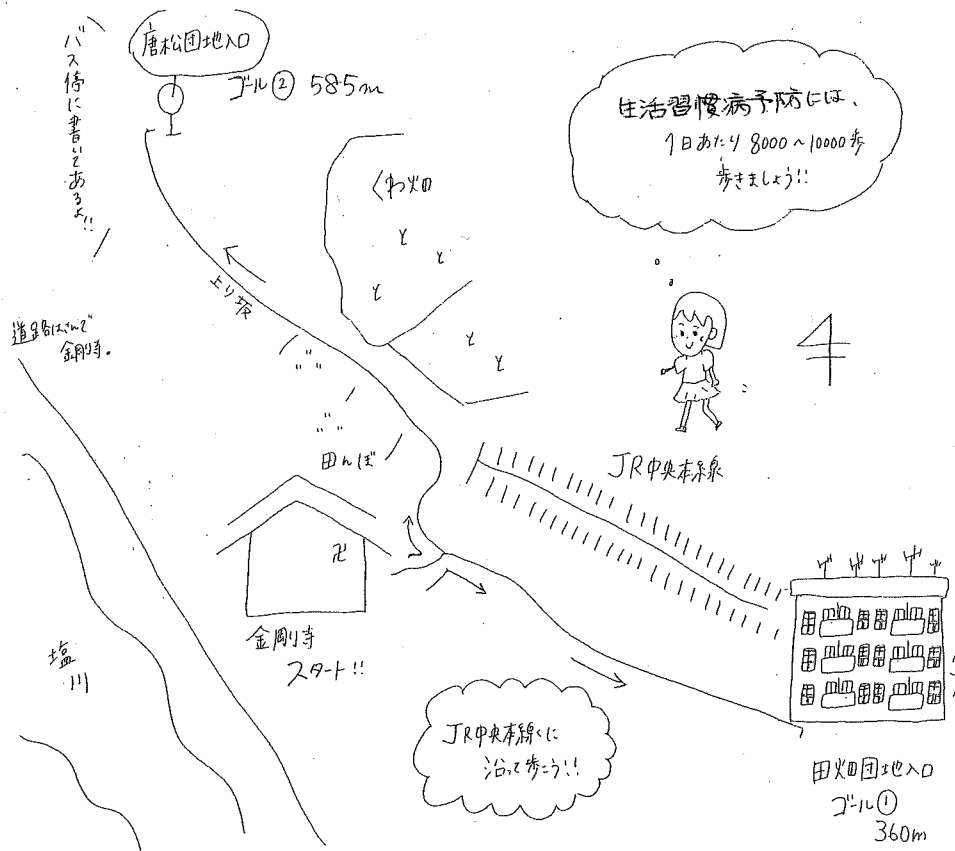 唐松団地入口
ゴール② 585m
バス停に書いてあるよ!!
生活習慣病予防には、
1日あたり 8000～10000歩
歩きましょう!!
くわ畑
上り坂
道路はさんで
金剛寺。
田んぼ
JR中央本線
卍
金剛寺
スタート!!
塩
川
JR中央本線に
沿って歩こう!!
田畑団地入口
ゴール①
360m